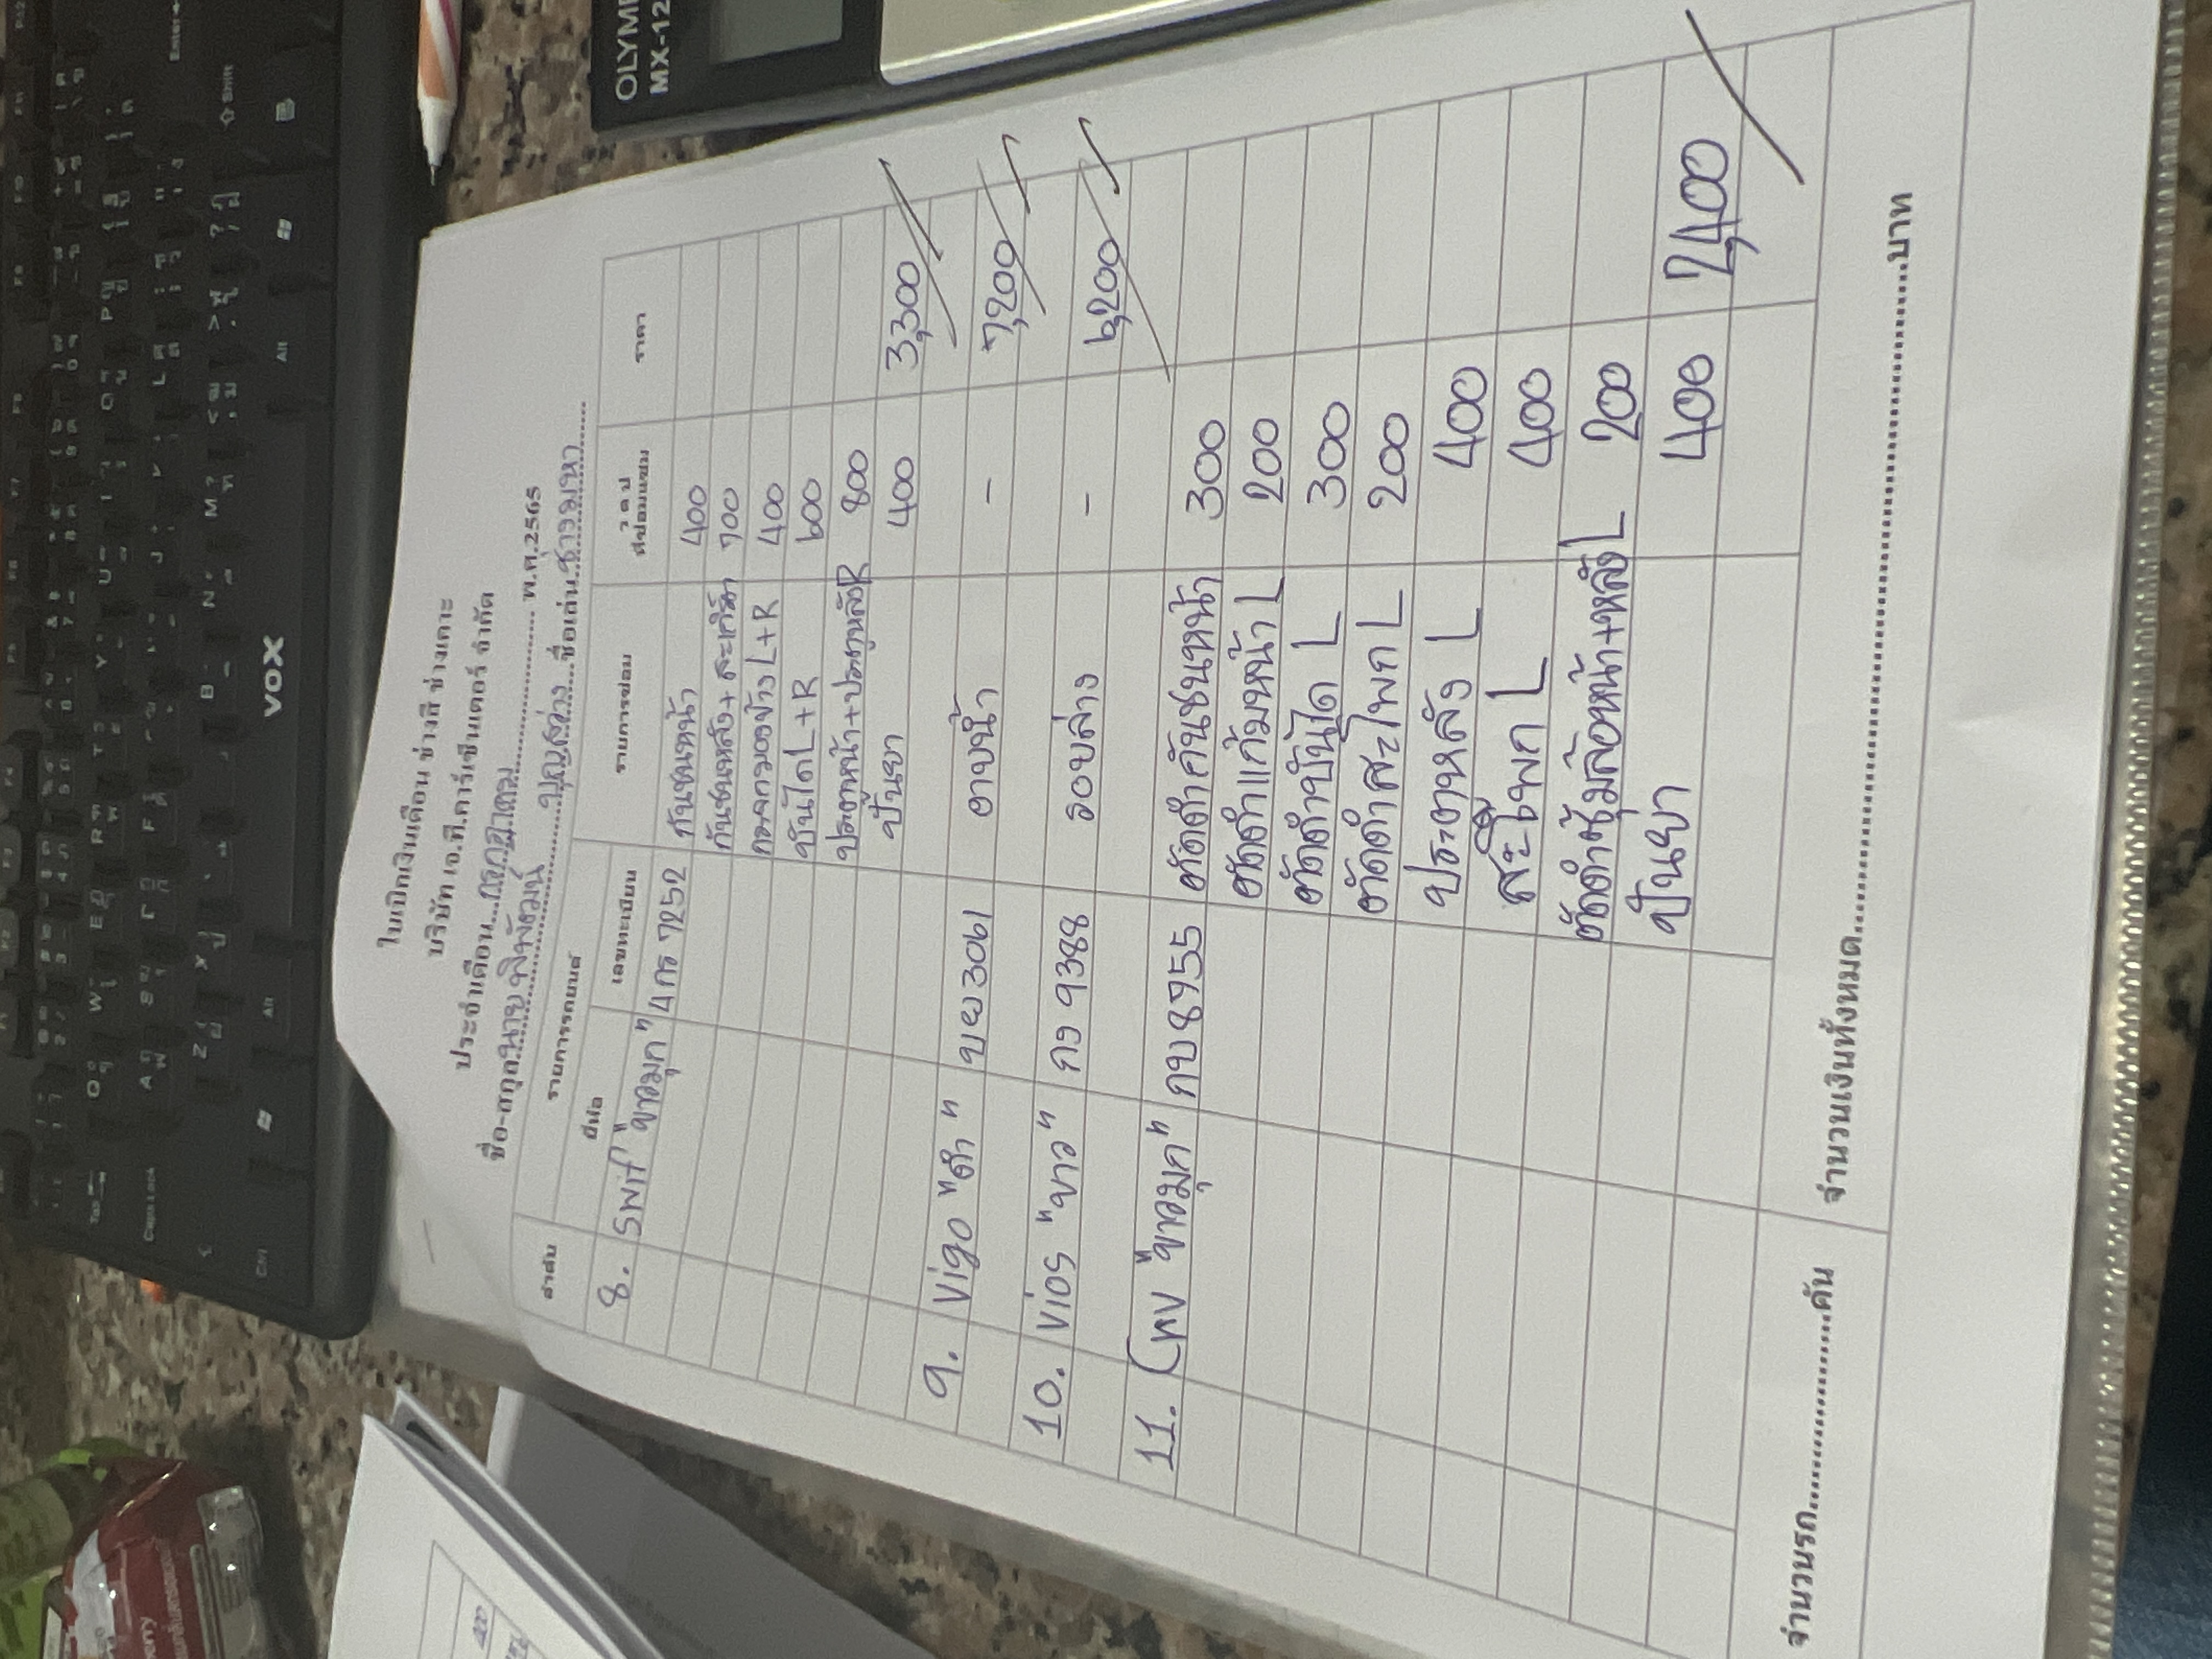 ใบเบิกเงินเดือน ช่างสี ช่างเคาะ
บริษัท เจ.ที.คาร์เซ็นเตอร์ จำกัด
ประจำเดือน...กรกฎาคม............... พ.ศ.2565
ชื่อ-สกุล...นายพิพัฒน์ บุญสว่าง ชื่อเล่น...ชาวมหา
ลำดับ รายการรถยนต์ รายการซ่อม ราคา
ยี่ห้อ เลขทะเบียน
8. Swif "ขาวมุก" 4กร 7252 กันชนหน้า 400
กันชนหลัง+สเกิร์ต 700
กระจกมองข้าง L+R 400
บันได L+R 600
ประตูหน้า+ประตูหลัง R 800
ปั้นยา 400 3,300
9. Vigo "ดำ" บย 3061 อาบน้ำ - 7,200
10. Vios "ขาว" กง 9388 รอบล่าง - 6,200
11. CRV "ขาวมุก" กบ 8955 ตัดดำกันชนหน้า 300
ตัดดำแก้มหน้า L 200
ตัดดำบันได L 300
ตัดดำสะโพก L 200
ประตูหลัง L 400
สะโพก L 400
ตัดดำซุ้มล้อหน้า+หลัง L 200
ปั้นยา 400 2,400
จำนวนรถ....................คัน จำนวนเงินทั้งหมด..........................................................บาท
VOX
OLYMP
MX-12